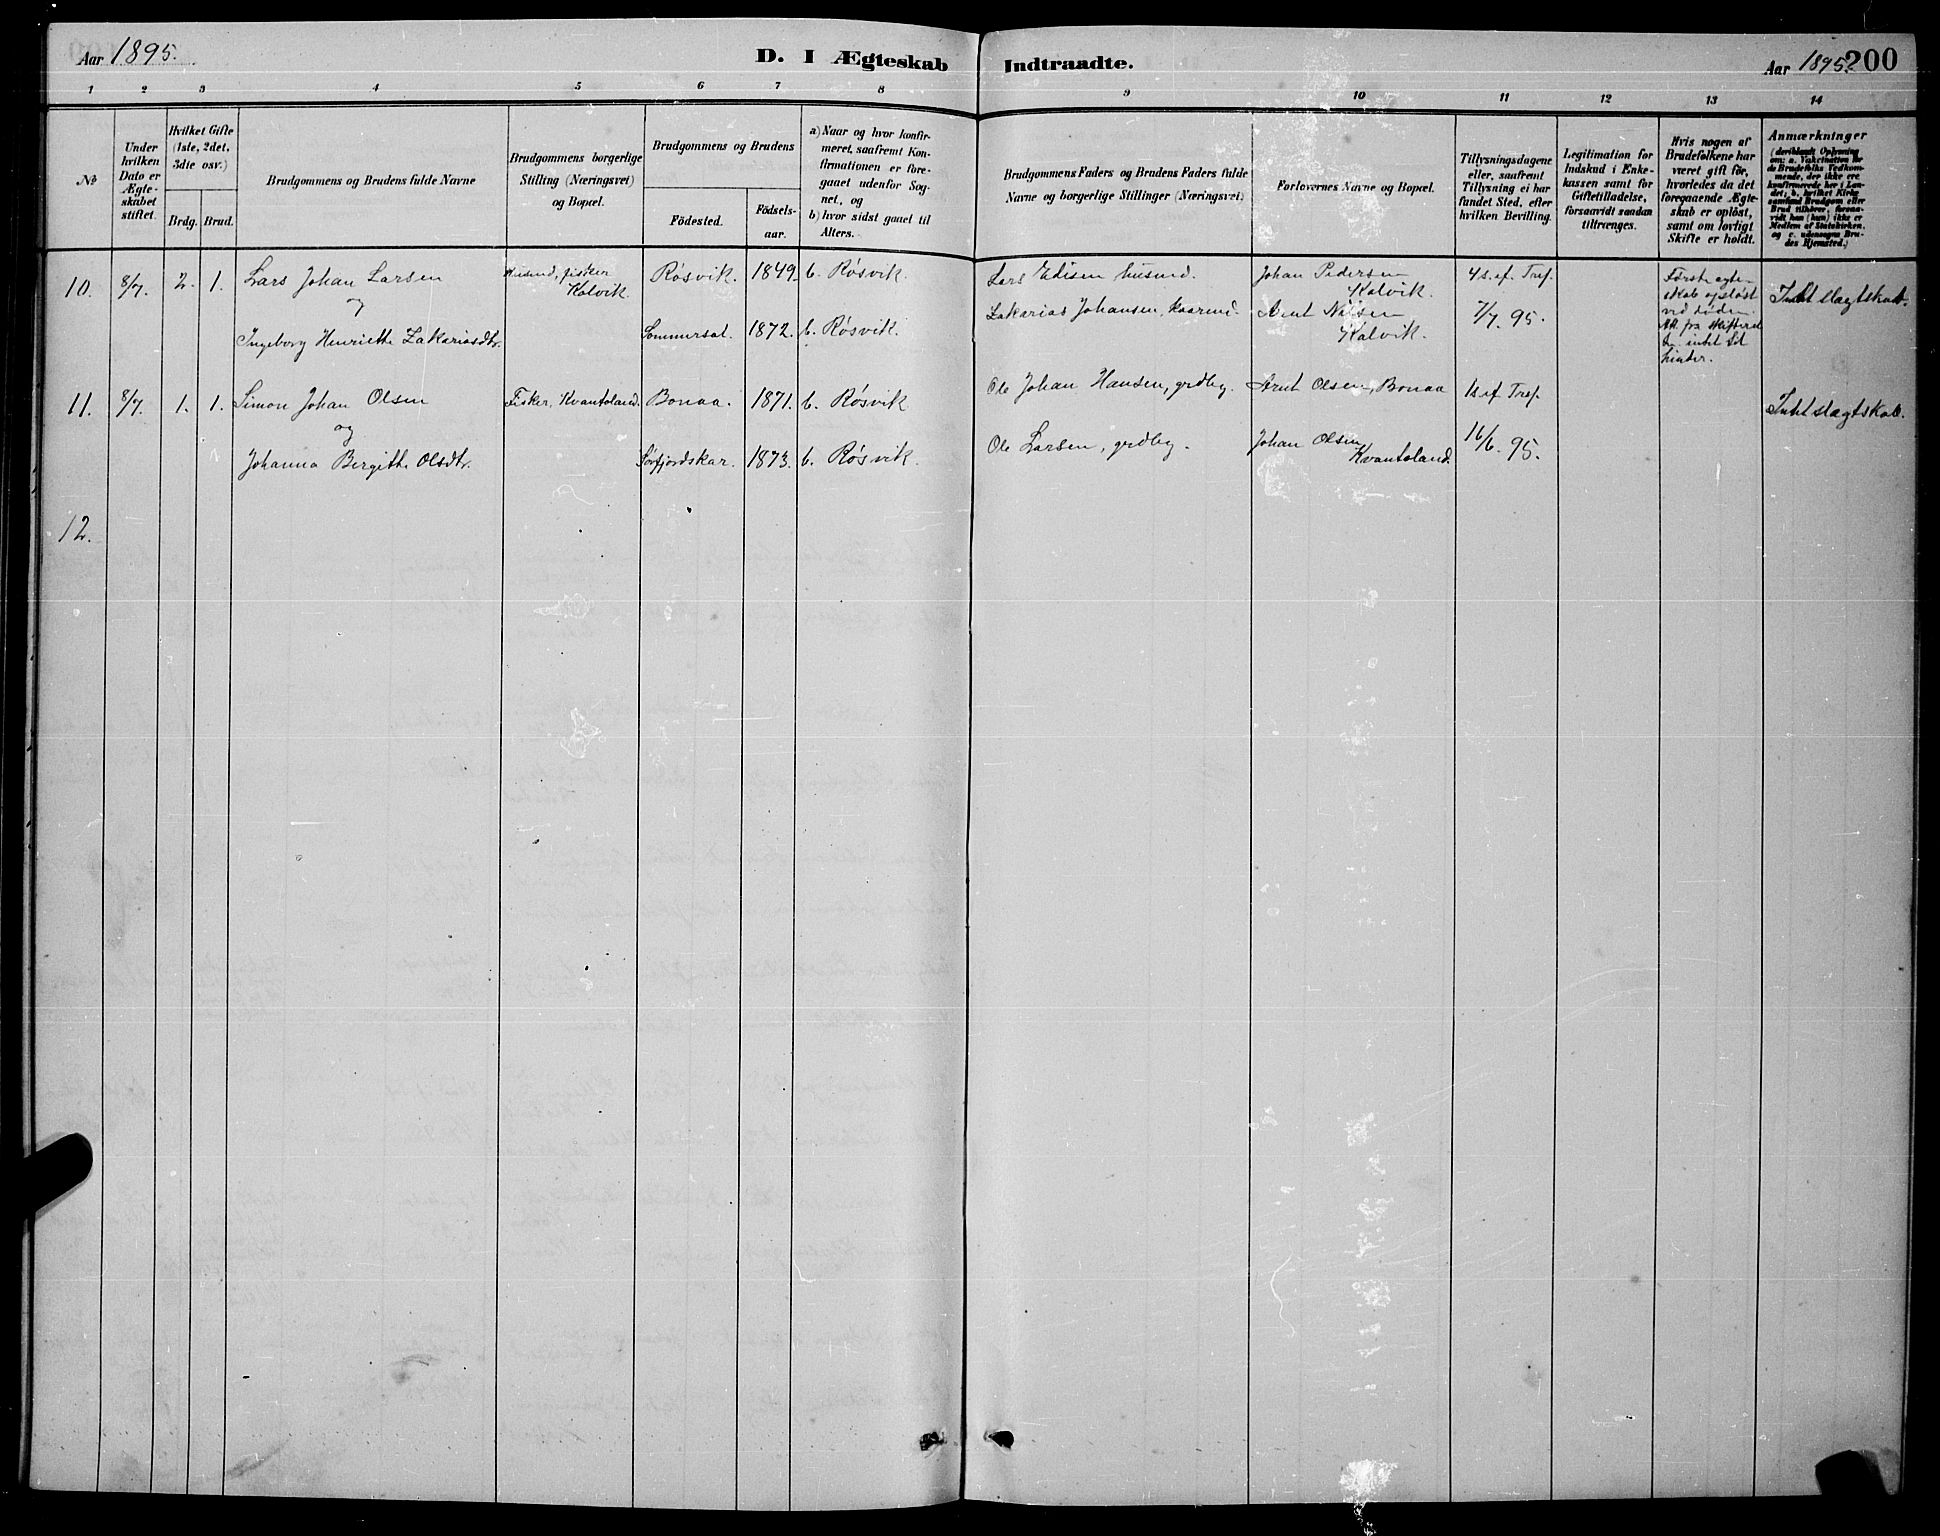 Aar 1895.
D. I Ægteskab Indtraadte.
Aar 1895. 200
1 2 3 4 5 6 7 8 9 10 11 12 13 14
No
Under hvilken Dato er Ægteskabet stiftet.
Hvilket Gifte (1ste, 2det, 3die osv.)
Brdg. Brud.
Brudgommens og Brudens fulde Navne
Brudgommens borgerlige Stilling (Næringsvei) og Bopæl.
Brudgommens og Brudens
Födested. Födsels-aar.
a) Naar og hvor konfirmeret, saafremt Konfirmationen er foregaaet udenfor Sognet, og
b) hvor sidst gaaet til Alters.
Brudgommens Faders og Brudens Faders fulde Navne og borgerlige Stillinger (Næringsvei)
Forlovernes Navne og Bopæl.
Tillysningsdagene eller, saafremt Tillysning ei har fundet Sted, efter hvilken Bevilling.
Legitimation for Indskud i Enkekassen samt for Giftetilladelse, forsaavidt saadan tiltrænges.
Hvis nogen af Brudefolkene har været gift för, hvorledes da det foregaaende Ægteskab er oplöst, samt om lovligt Skifte er holdt.
Anmærkninger
(deriblandt Oplysning om: a. Vaksination for de Brudefolks Vedkommende, der ikke ere konfirmerede her i Landet; b. hvilket Kirkesamfund Brudgom eller Brud tilhörer, forsaavidt han (hun) ikke er Medlem af Statskirken, og c. udensogns Brudes Hjemsted.)
10. 8/7. 2. 1. Lars Johan Larsen
og
Ingeborg Henriette Zakariasdtr.
Husmd, fisker
Kalvik.
Røsvik. 1849. b. Røsvik.
Sommerset. 1872. b. Røsvik.
Lars Edisen husmd.
Zakarias Johansen, kaarmd.
Johan Pedersen
Kalvik.
Arnt Nilsen
Kalvik.
4 s. ef. Tref.
7/7. 95.
Første egteskab opløst ved døden. Att. fra skifteret om intet til hinder.
Intet slagtskab.
11. 8/7. 1. 1. Simon Johan Olsen
og
Johanna Bergitte Olsdtr.
Fisker, Kvantoland.
Bonaa. 1871. b. Røsvik
Sørfjordskar. 1873. b. Røsvik.
Ole Johan Hansen, grdbg.
Ole Larsen, grdbg.
Arnt Olsen, Bonaa
Johan Olsen,
Kvantoland.
1 s ef Tref.
16/6. 95.
Intet slægtskab.
12.